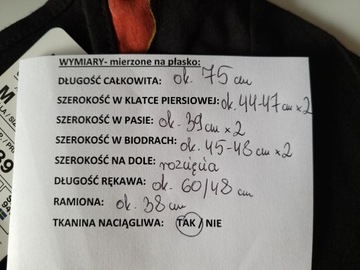 WYMIARY- mierzone na płasko:
DŁUGOŚĆ CAŁKOWITA: ok. 75 cm
SZEROKOŚĆ W KLATCE PIERSIOWEJ: ok. 44-47 cm x 2
SZEROKOŚĆ W PASIE: ok. 39 cm x 2
SZEROKOŚĆ W BIODRACH: ok. 45-48 cm x 2
SZEROKOŚĆ NA DOLE: rozcięcia
DŁUGOŚĆ RĘKAWA: ok. 60/48 cm
RAMIONA: ok. 38 cm
TKANINA NACIĄGLIWA: TAK / NIE
M
39